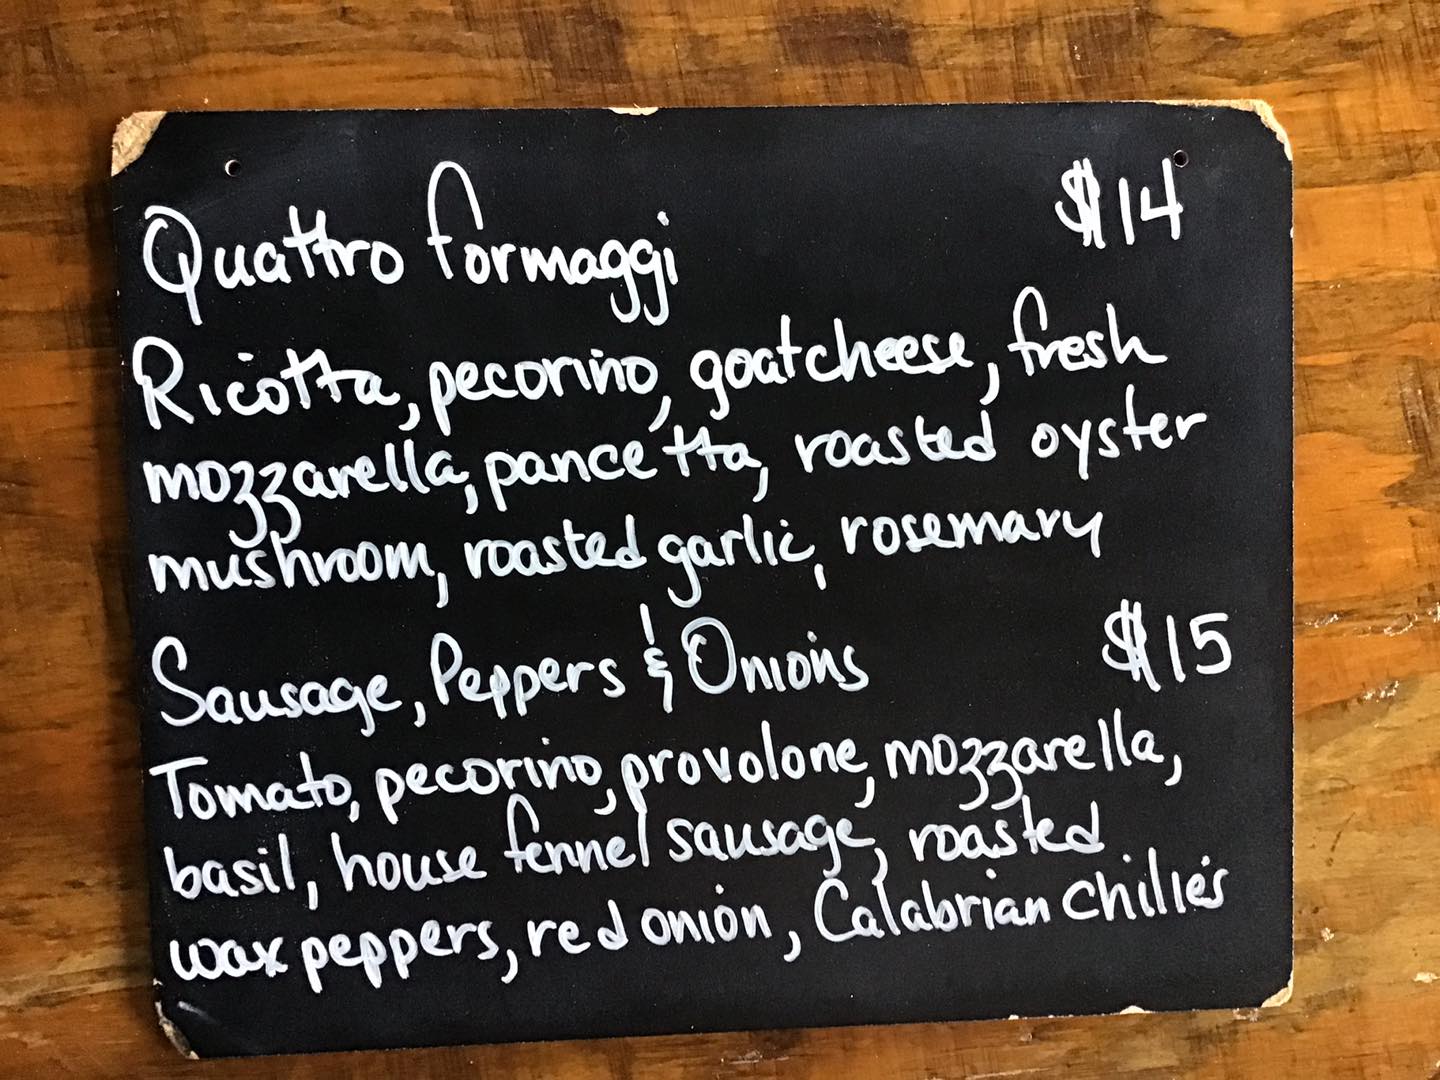 Quattro formaggi $14
Ricotta, pecorino, goat cheese, fresh
mozzarella, pancetta, roasted oyster
mushroom, roasted garlic, rosemary
Sausage, Peppers & Onions $15
Tomato, pecorino, provolone, mozzarella,
basil, house fennel sausage, roasted
wax peppers, red onion, Calabrian chilies